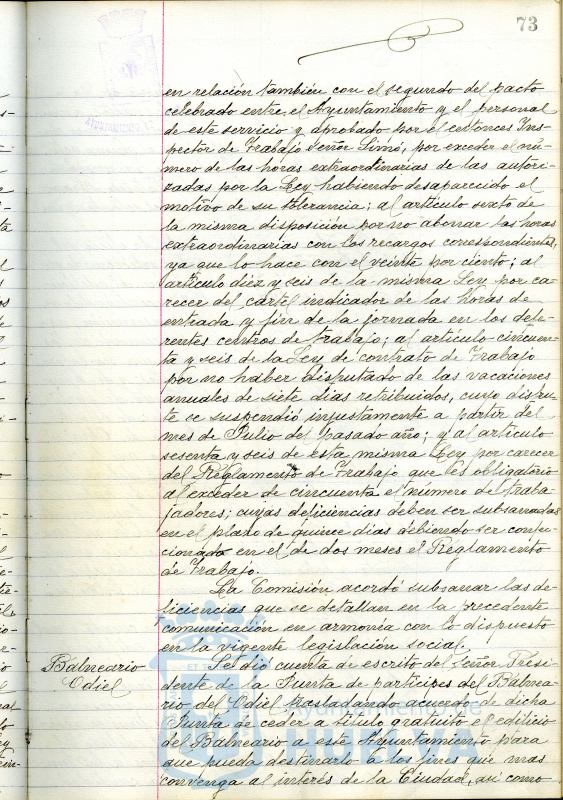 73
en relación también con el segundo del pacto
celebrado entre el Ayuntamiento y el personal
de este servicio y aprobado por el entonces Ins-
pector de Trabajo señor Simó, por exceder el nú-
mero de las horas extraordinarias de las autori-
zadas por la Ley habiendo desaparecido el
motivo de su tolerancia; al artículo sexto de
la misma disposición por no abonar las horas
extraordinarias con los recargos correspondientes,
ya que lo hace con el veinte por ciento; al
artículo diez y seis de la misma Ley por ca-
recer del cartel indicador de las horas de
entrada y fin de la jornada en los dife-
rentes centros de trabajo; al artículo cincuen-
ta y seis de la Ley de contrato de Trabajo
por no haber disfrutado de las vacaciones
anuales de siete días retribuidos, cuyo disfru-
te se suspendió injustamente a partir del
mes de Julio del pasado año; y al artículo
sesenta y seis de esta misma Ley por carecer
del Reglamento de Trabajo que es obligatorio
al exceder de cincuenta el número de traba-
jadores; cuyas deficiencias deben ser subsanadas
en el plazo de quince días debiendo ser confec-
cionado en el de dos meses el Reglamento
de Trabajo.
La Comisión acordó subsanar las de-
ficiencias que se detallan en la precedente
comunicación en armonía con lo dispuesto
en la vigente legislación social.
Balneario
Odiel
Se dió cuenta de escrito del señor Presi-
dente de la Junta de partícipes del Balnea-
rio del Odiel trasladando acuerdo de dicha
Junta de ceder a título gratuito el edificio
del Balneario a este Ayuntamiento para
que pueda destinarlo a los fines que mas
convenga al interés de la Ciudad, así como
Ayuntamiento de
HUELVA